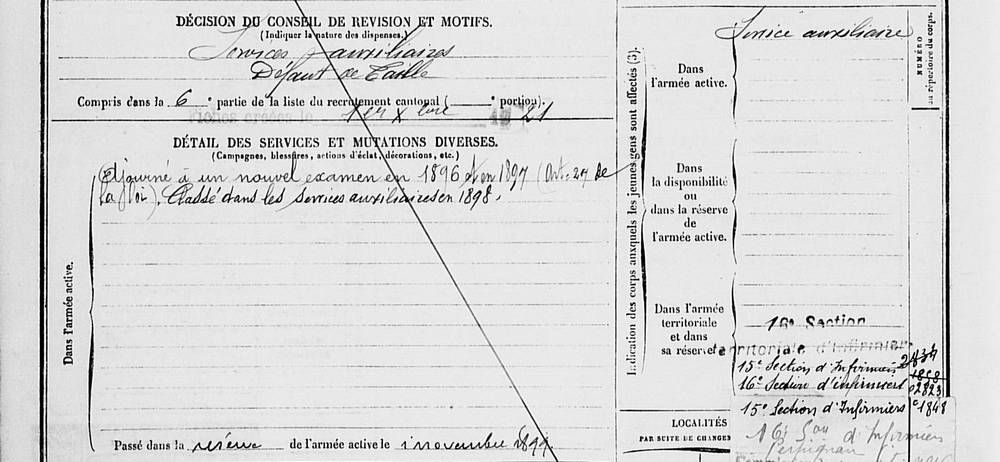 DÉCISION DU CONSEIL DE REVISION ET MOTIFS.
(Indiquer la nature des dispenses.)
Services auxiliaires
Défaut de Taille
Compris dans la 6e partie de la liste du recrutement cantonal ( e portion).
Fiches créées le 1er Xbre 1921
DÉTAIL DES SERVICES ET MUTATIONS DIVERSES.
(Campagnes, blessures, actions d'éclat, décorations, etc.)
Ajourné à un nouvel examen en 1896 et en 1897 (Art. 27 de
la loi). Classé dans les services auxiliaires en 1898.
Dans l'armée active.
Passé dans la réserve de l'armée active le 1 novembre 1899.
Indication des corps auxquels les jeunes gens sont affectés (3).
Dans
l'armée active.
Service auxiliaire
NUMÉRO
au répertoire du corps.
Dans
la disponibilité
ou
dans la réserve
de
l'armée active.
Dans l'armée
territoriale
et dans
sa réserve
16e Section
territoriale d'Infirmiers
15e Section d'Infirmiers
16e Section d'infirmiers 02823
15e Section d'Infirmiers 1848
LOCALITÉS
PAR SUITE DE CHANGEM
16e Son d'Infirmiers
Perpignan